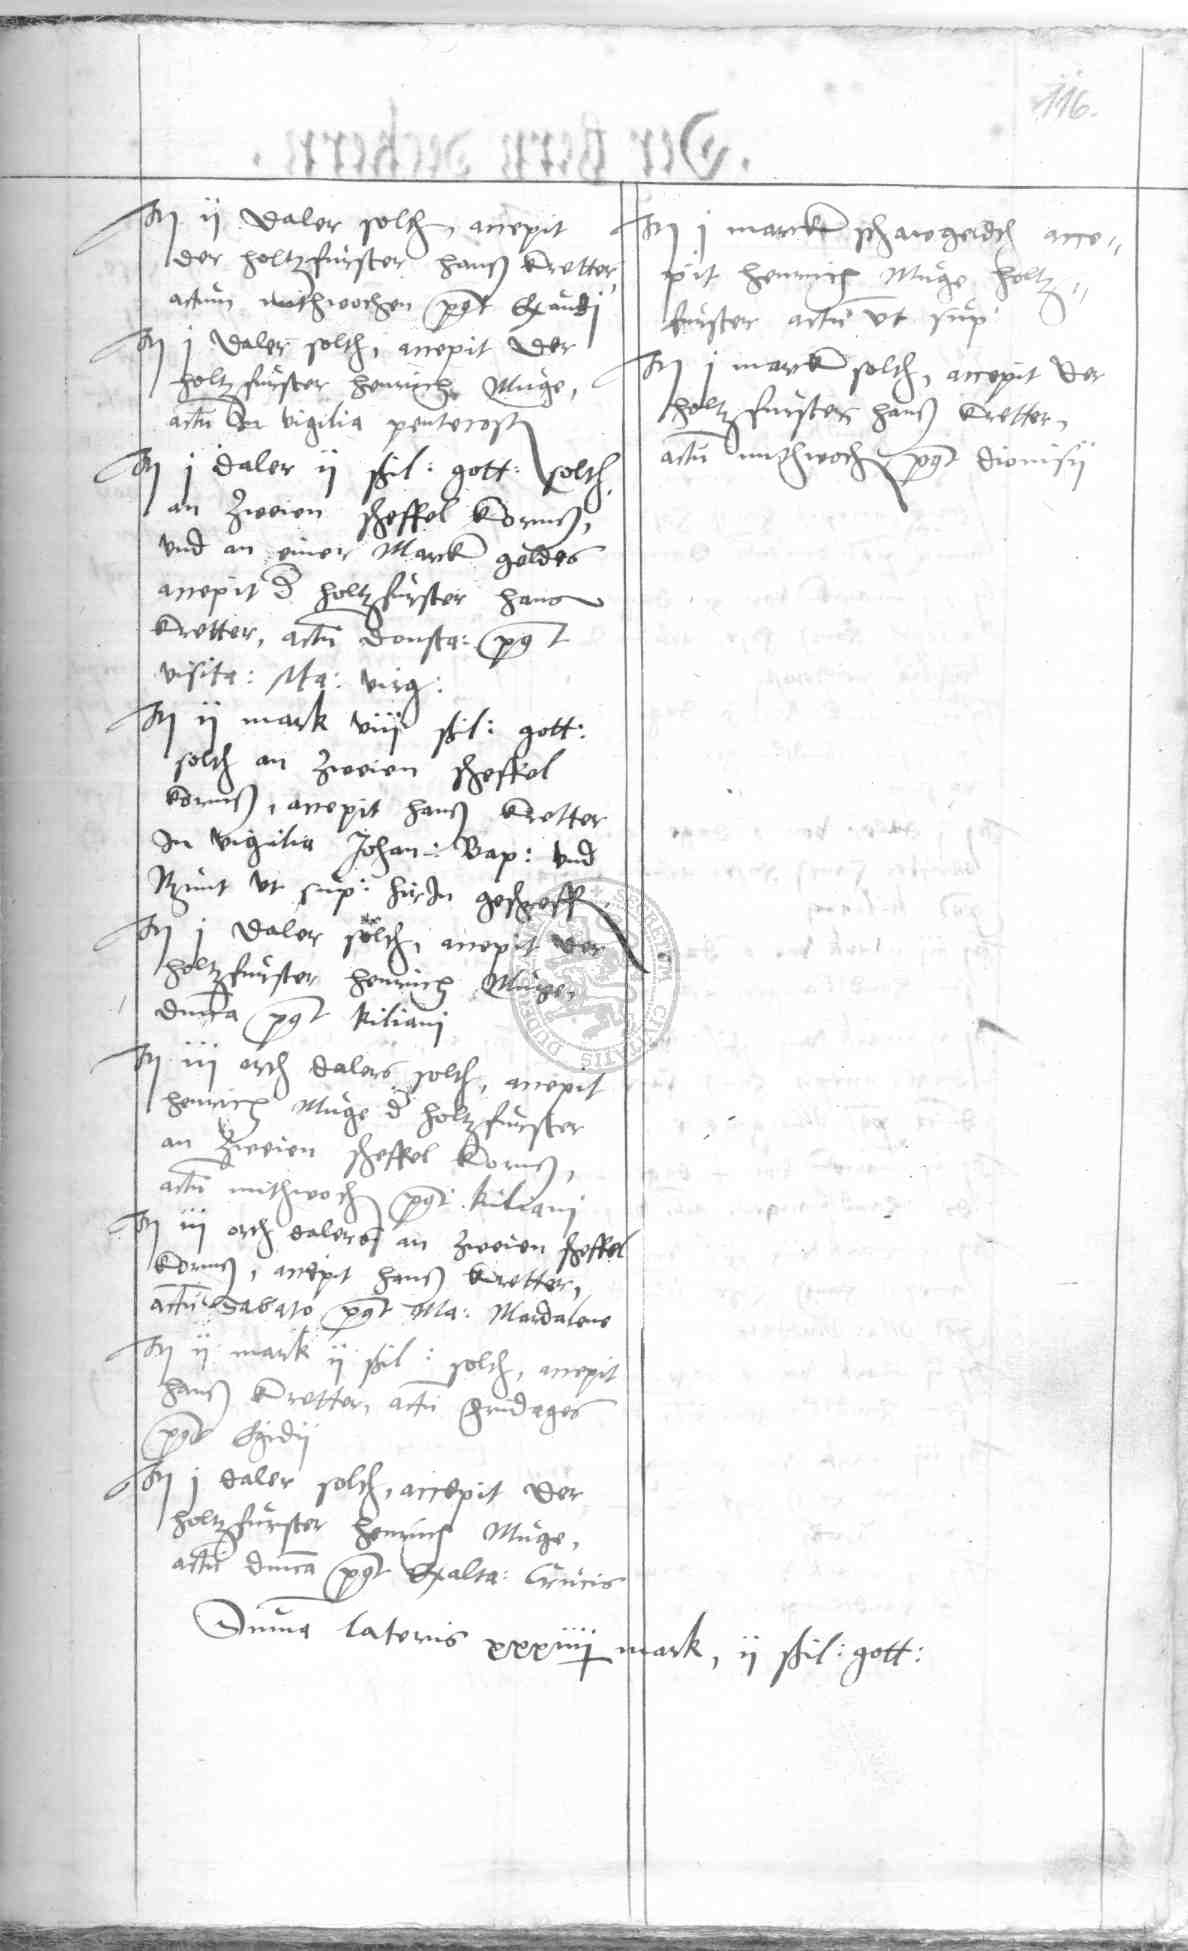 116.
It ij daler solth, accepit
der holtzfurster Hanß Kretter,
actum mithwochen post Exaudi
It j daler solth, accepit der
holtzfurster Henrich Muge,
actu In vigilia pentecost
It j daler ij ßil: gott: solth
an zweien scheffel Kornß,
vnd an einer Marck geldes
accepit d holtzfurster Hans
Kretter, actu donsta: post
visita: Ma: virg:
It ij mark viij ßil: gott:
solth an zweien scheffel
Kornß, accepit Hanß Kretter
In vigilia Johan: Bap: vnd
ut sup:
It j daler solth, accepit der
holtzfurster Henrich Muge,
dnica post Kiliani
It iij orth dalers solth, accepit
Henrich Muge d holtzfurster
an zweien scheffel Kornß,
actu mithwoch post Kiliani
It iij orth dalers an zweien scheffel
Kornß, accepit Hanß Kretter,
actu Sabato post Ma: Mardalene
It ij mark ij ßil: solth, accepit
Hanß Kretter, actu fridages
post Egidij
It j daler solth, accepit der
holtzfurster Henrich Muge,
actu dnica post Exalta: Crucis
It j marck accepit Henrich Muge holtzfurster actu ut sup
It j marck solth, accepit der
holtzfurster Hanß Kretter,
actu mithwoch post dionisij
Suma lateris xxxiiij mark, ij ßil: gott: